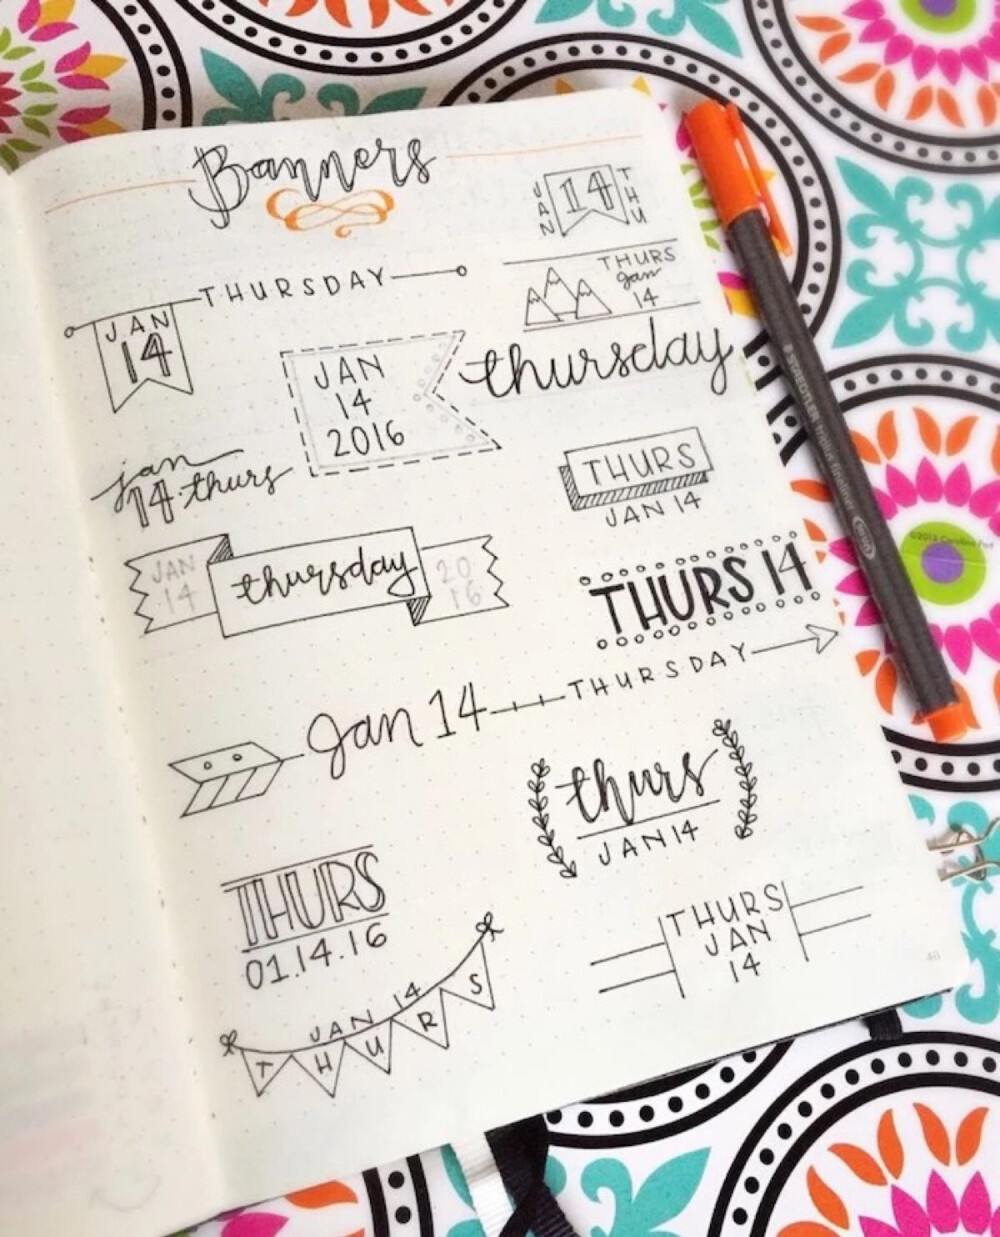 Banners
JAN
14
THU
THURSDAY
JAN
14
THURS
jan
14
JAN
14
2016
thursday
jan
14 thurs
THURS
JAN 14
JAN
14
thursday
20
16
THURS 14
Jan 14
THURSDAY
thurs
JAN 14
THURS
01.14.16
THURS
JAN
14
JAN 14
THURS
STAEDTLER triplus fineliner
©2013 Caroline
40